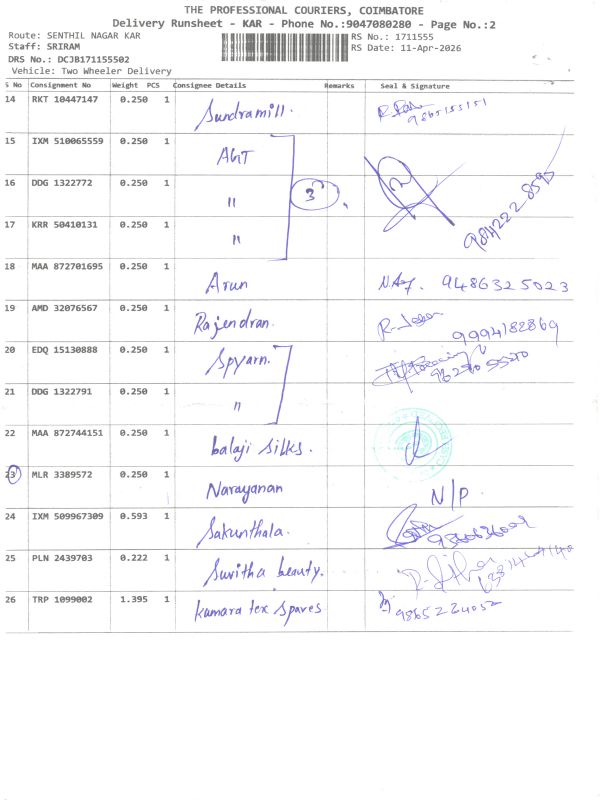 THE PROFESSIONAL COURIERS, COIMBATORE
Delivery Runsheet - KAR - Phone No.:9047080280 - Page No.:2
Route: SENTHIL NAGAR KAR RS No.: 1711555
Staff: SRIRAM RS Date: 11-Apr-2026
DRS No.: DCJB171155502
Vehicle: Two Wheeler Delivery
S No Consignment No Weight PCS Consignee Details Remarks Seal & Signature
14 RKT 10447147 0.250 1 Sundramill. 9865155151
15 IXM 510065559 0.250 1 AGT
16 DDG 1322772 0.250 1 " 3 984222 8595
17 KRR 50410131 0.250 1 "
18 MAA 872701695 0.250 1 Arun 9486325023
19 AMD 32076567 0.250 1 Rajendran. 9994182869
20 EDQ 15130888 0.250 1 Spyarn.
21 DDG 1322791 0.250 1 "
22 MAA 872744151 0.250 1 balaji silks.
23 MLR 3389572 0.250 1 Narayanan N/P
24 IXM 509967309 0.593 1 Sakunthala.
25 PLN 2439703 0.222 1 Suvitha beauty.
26 TRP 1099002 1.395 1 kumara tex spares 9865224052